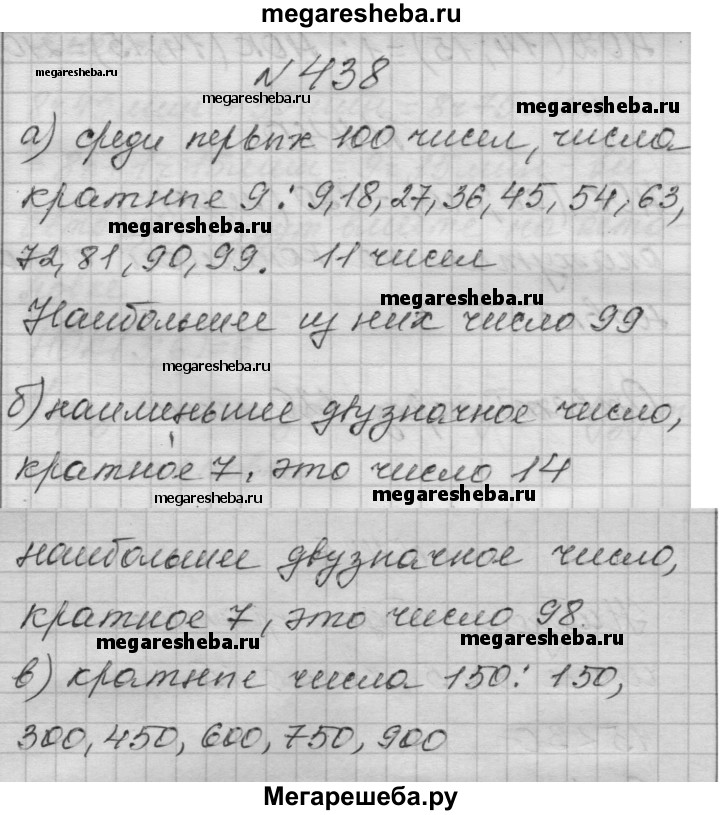 megaresheba.ru
№ 438
megaresheba.ru
megaresheba.ru
megaresheba.ru
а) среди первых 100 чисел, числа
кратные 9: 9, 18, 27, 36, 45, 54, 63,
megaresheba.ru
72, 81, 90, 99. 11 чисел
megaresheba.ru
Наибольшее из них число 99
megaresheba.ru
б) наименьшее двузначное число,
кратное 7, это число 14
megaresheba.ru
megaresheba.ru
наибольшее двузначное число,
кратное 7, это число 98.
megaresheba.ru
megaresheba.ru
в) кратные числа 150: 150,
300, 450, 600, 750, 900
Мегарешеба.ру